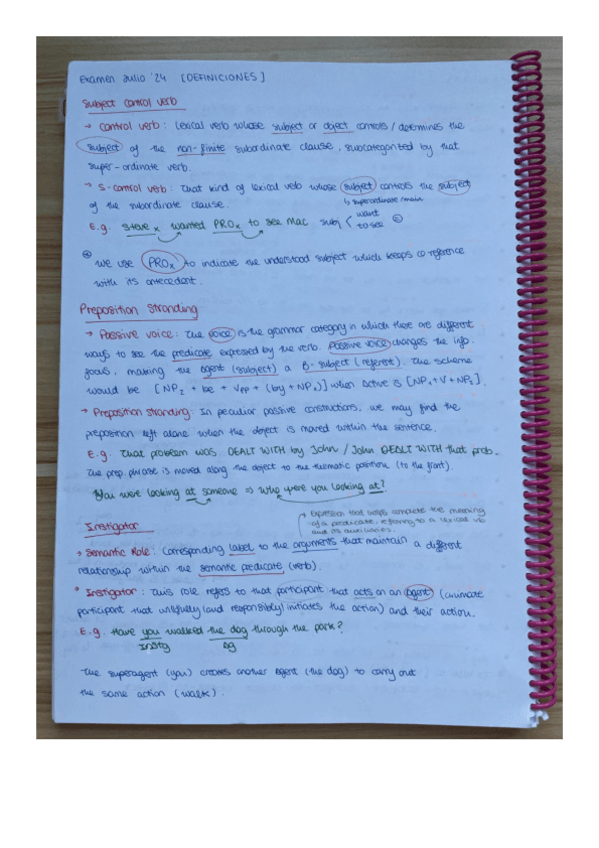 Examen Julio '24 [DEFINICIONES]
Subject control verb
→ Control verb: Lexical verb whose subject or object controls / determines the
subject of the non-finite subordinate clause, subcategorized by that
super-ordinate verb.
→ S-control verb: That kind of lexical verb whose subject controls the subject
↳ superordinate / main
of the subordinate clause.
E.g. Steve x wanted PROx to see Mac. subj < want
to see
We use PROx to indicate the understood subject which keeps co reference
with its antecedent.
Preposition Stranding
→ Passive voice: The voice is the grammar category in which there are different
ways to see the predicate expressed by the verb. Passive voice changes the info.
focus, making the agent (subject) a B-subject (referent). The scheme
would be [NP2 + be + VPP + (by + NP1)] when active is [NP1 + V + NP2].
→ Preposition stranding: In peculiar passive constructions, we may find the
preposition left alone when the object is moved within the sentence.
E.g. That problem was DEALT WITH by John / John DEALT WITH that prob.
The prep. phrase is moved along the object to the thematic position (to the front).
You were looking at someone ⇒ Who were you looking at?
→ Expression that helps complete the meaning
of a predicate, referring to a lexical vb
and its auxiliaries.
Instigator
→ Semantic Role: Corresponding label to the arguments that maintain a different
relationship within the semantic predicate (verb).
* Instigator: This role refers to that participant that acts on an agent (animate
participant that willfully (and responsibly) initiates the action) and their action.
E.g. Have you walked the dog through the park?
Instg Ag
The superagent (you) creates another Agent (the dog) to carry out
the same action (walk).